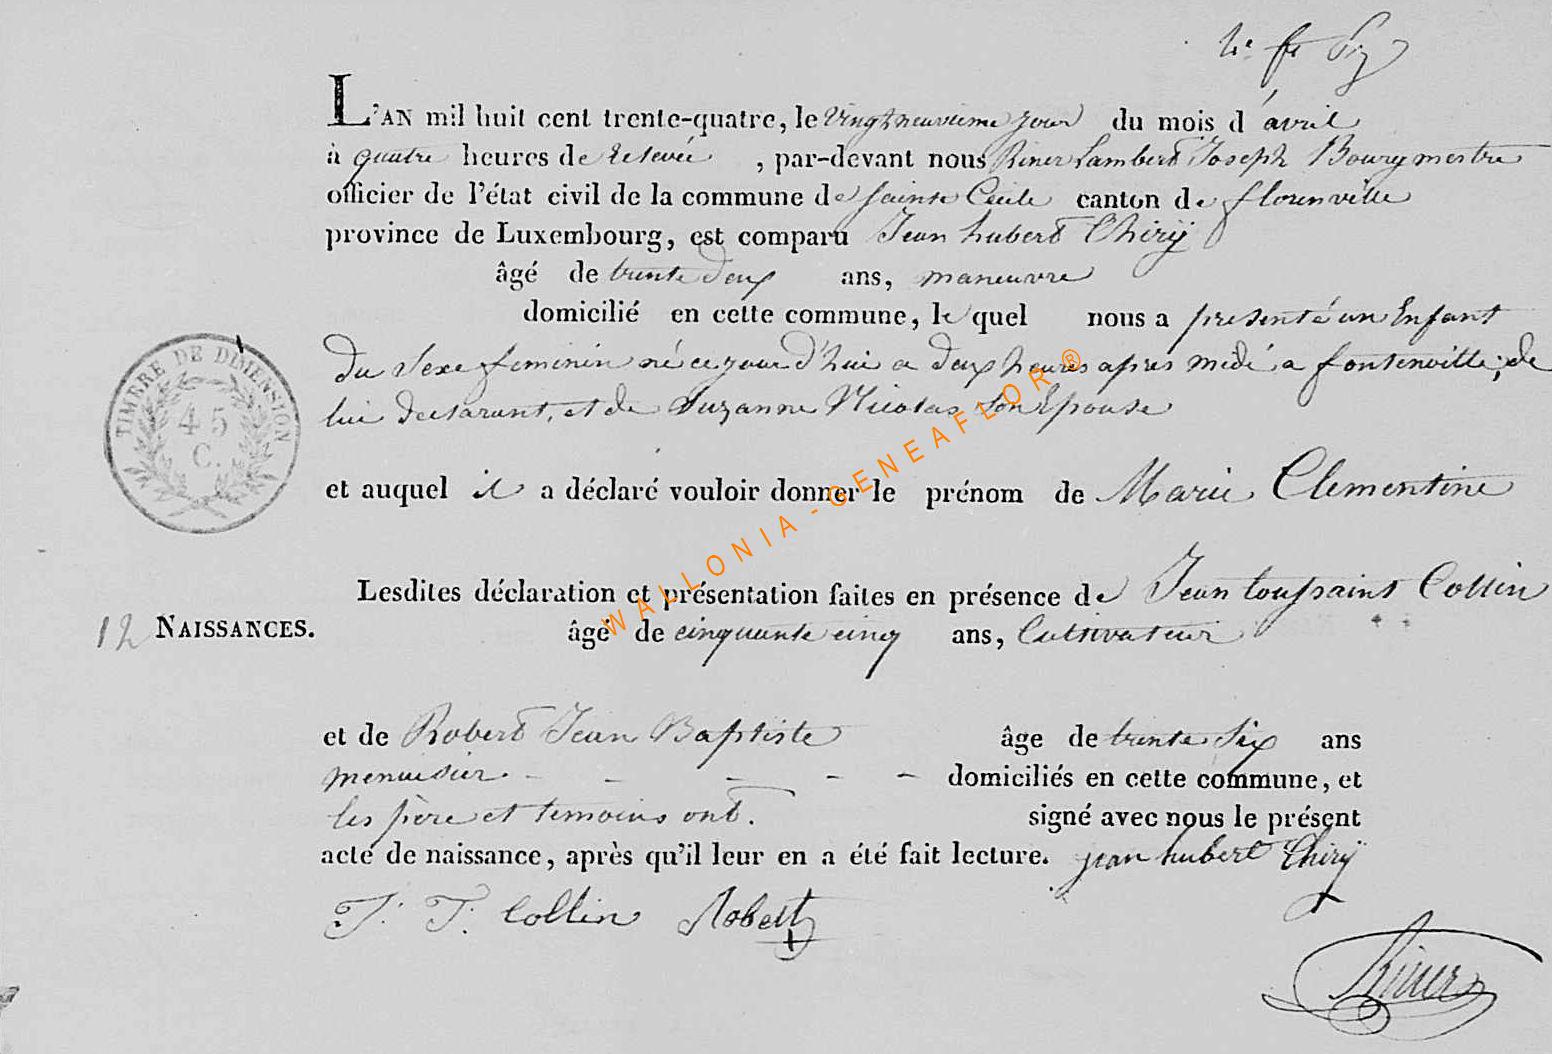 L'AN mil huit cent trente-quatre, le vingt neuvieme jour du mois d'avril
à quatre heures de relevée , par-devant nous Riner Lambert Joseph Bourgmestre
officier de l'état civil de la commune de Sainte Cecile canton de florenville
province de Luxembourg, est comparu Jean hubert Thiry
âgé de trente deux ans, maneuvre
domicilié en cette commune, le quel nous a presenté un Enfant
du Sexe feminin né ce jour d'hui a deux heures apres midi a fontenville, de
lui declarant, et de Suzanne Nicolas son Epouse
TIMBRE DE DIMENSION
45
C.
et auquel il a déclaré vouloir donner le prénom de Marie Clementine
Lesdites déclaration et présentation faites en présence de Jean toussaint Collin
12 NAISSANCES.
âgé de cinquante cinq ans, Cultivateur
et de Robert Jean Baptiste âge de trente six ans
menuisier - - - - - domiciliés en cette commune, et
les père et temoins ont. signé avec nous le présent
acte de naissance, après qu'il leur en a été fait lecture. jean hubert Thiry
J. T. Collin Robert
Riner
WALLONIA-GENEAFLOR®